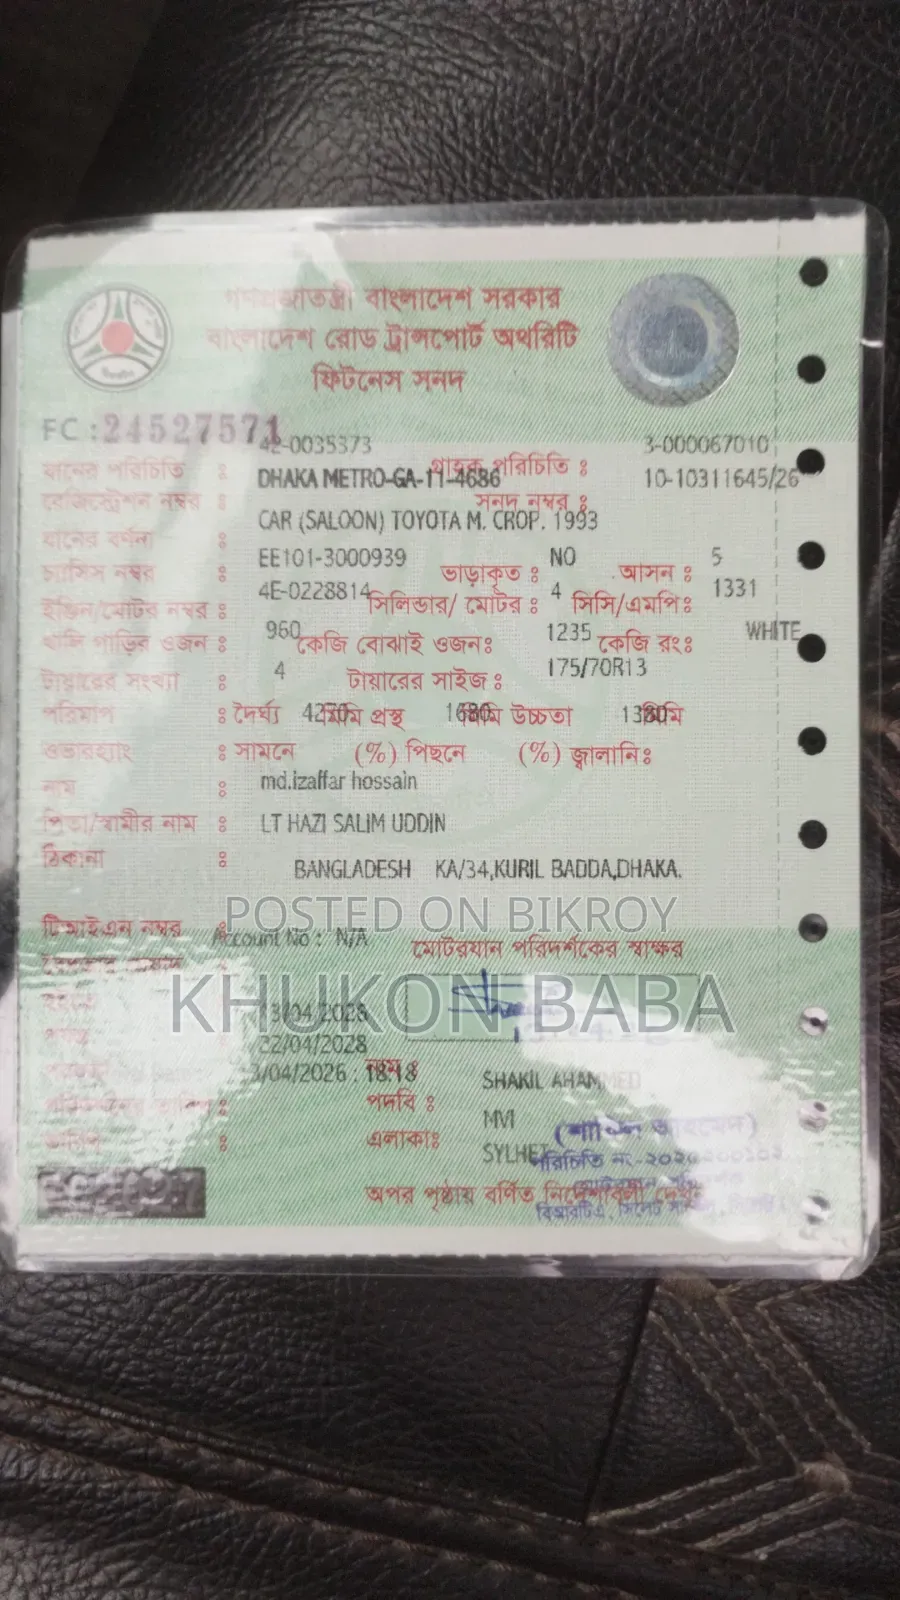 গণপ্রজাতন্ত্রী বাংলাদেশ সরকার
বাংলাদেশ রোড ট্রান্সপোর্ট অথরিটি
ফিটনেস সনদ
FC : 24527571
42-0035373 3-000067010
যানের পরিচিতি : গ্রাহক পরিচিতি :
DHAKA METRO-GA-11-4686 10-10311645/26
রেজিস্ট্রেশন নম্বর : সনদ নম্বর :
CAR (SALOON) TOYOTA M. CROP. 1993
যানের বর্ণনা :
EE101-3000939 NO 5
চ্যাসিস নম্বর : ভাড়াকৃত : আসন :
4E-0228814 4 1331
ইঞ্জিন/মোটর নম্বর : সিলিন্ডার/ মোটর : সিসি/এমপি:
960 1235 WHITE
খালি গাড়ির ওজন : কেজি বোঝাই ওজন: কেজি রং:
4 175/70R13
টায়ারের সংখ্যা : টায়ারের সাইজ :
পরিমাপ : দৈর্ঘ্য 4270 মিমি প্রস্থ 1680 মিমি উচ্চতা 1380 মিমি
ওভারহ্যাং : সামনে (%) পিছনে (%) জ্বালানি:
md.izaffar hossain
নাম :
পিতা/স্বামীর নাম : LT HAZI SALIM UDDIN
ঠিকানা :
BANGLADESH KA/34,KURIL BADDA,DHAKA.
POSTED ON BIKROY
টিআইএন নম্বর : Account No : N/A
মোটরযান পরিদর্শকের স্বাক্ষর
KHUKON BABA
22/04/2028
3/04/2026 . 18:18 নাম :
SHAKIL AHAMMED
পদবি : MVI
এলাকা: SYLHET
অপর পৃষ্ঠায় বর্ণিত নির্দেশাবলী দেখুন